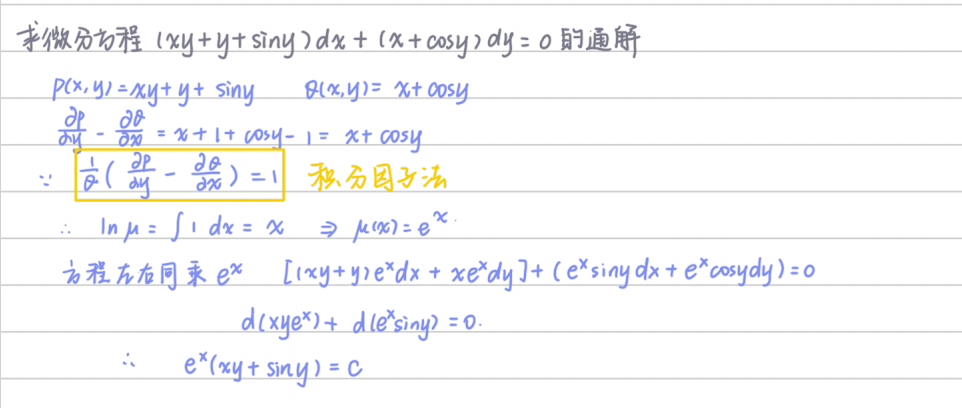 求微分方程 (xy+y+siny)dx+(x+cosy)dy=0 的通解
P(x,y)=xy+y+siny Q(x,y)=x+cosy
∂P/∂y - ∂Q/∂x = x+1+cosy-1 = x+cosy
∵ 1/Q(∂P/∂y - ∂Q/∂x)=1 积分因子法
∴ lnμ=∫1dx=x ⇒ μ(x)=e^x.
方程左右同乘 e^x [(xy+y)e^xdx+xe^xdy]+(e^xsinydx+e^xcosydy)=0
d(xye^x)+d(e^xsiny)=0.
∴ e^x(xy+siny)=C